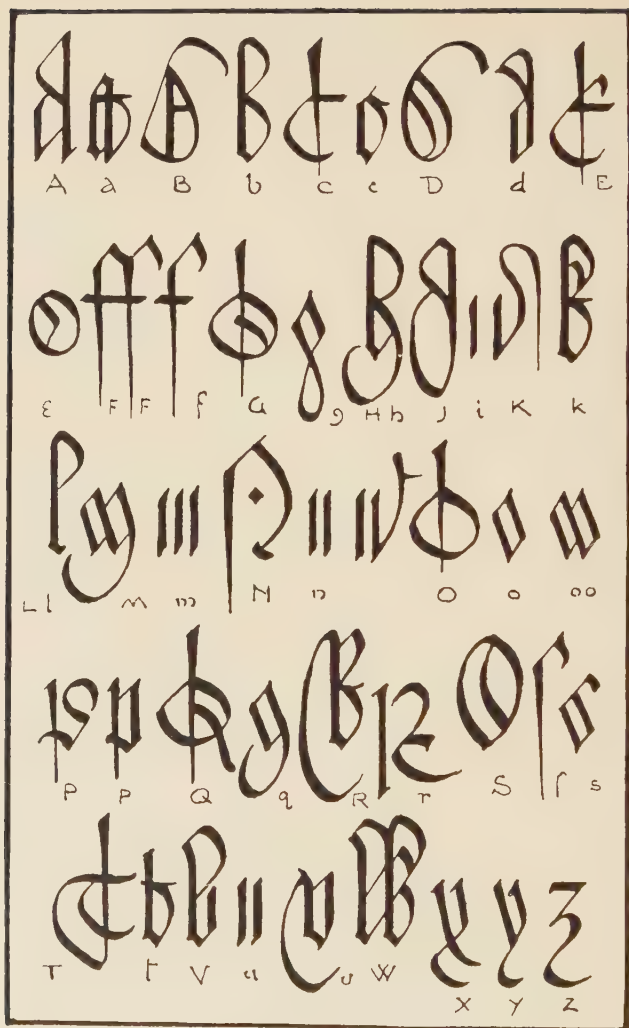 A a B b C c D d E
e F F f G g H h J i K k
L l M m N n O o oo
P P Q q R r S ſ s
T t V u u W
X y z